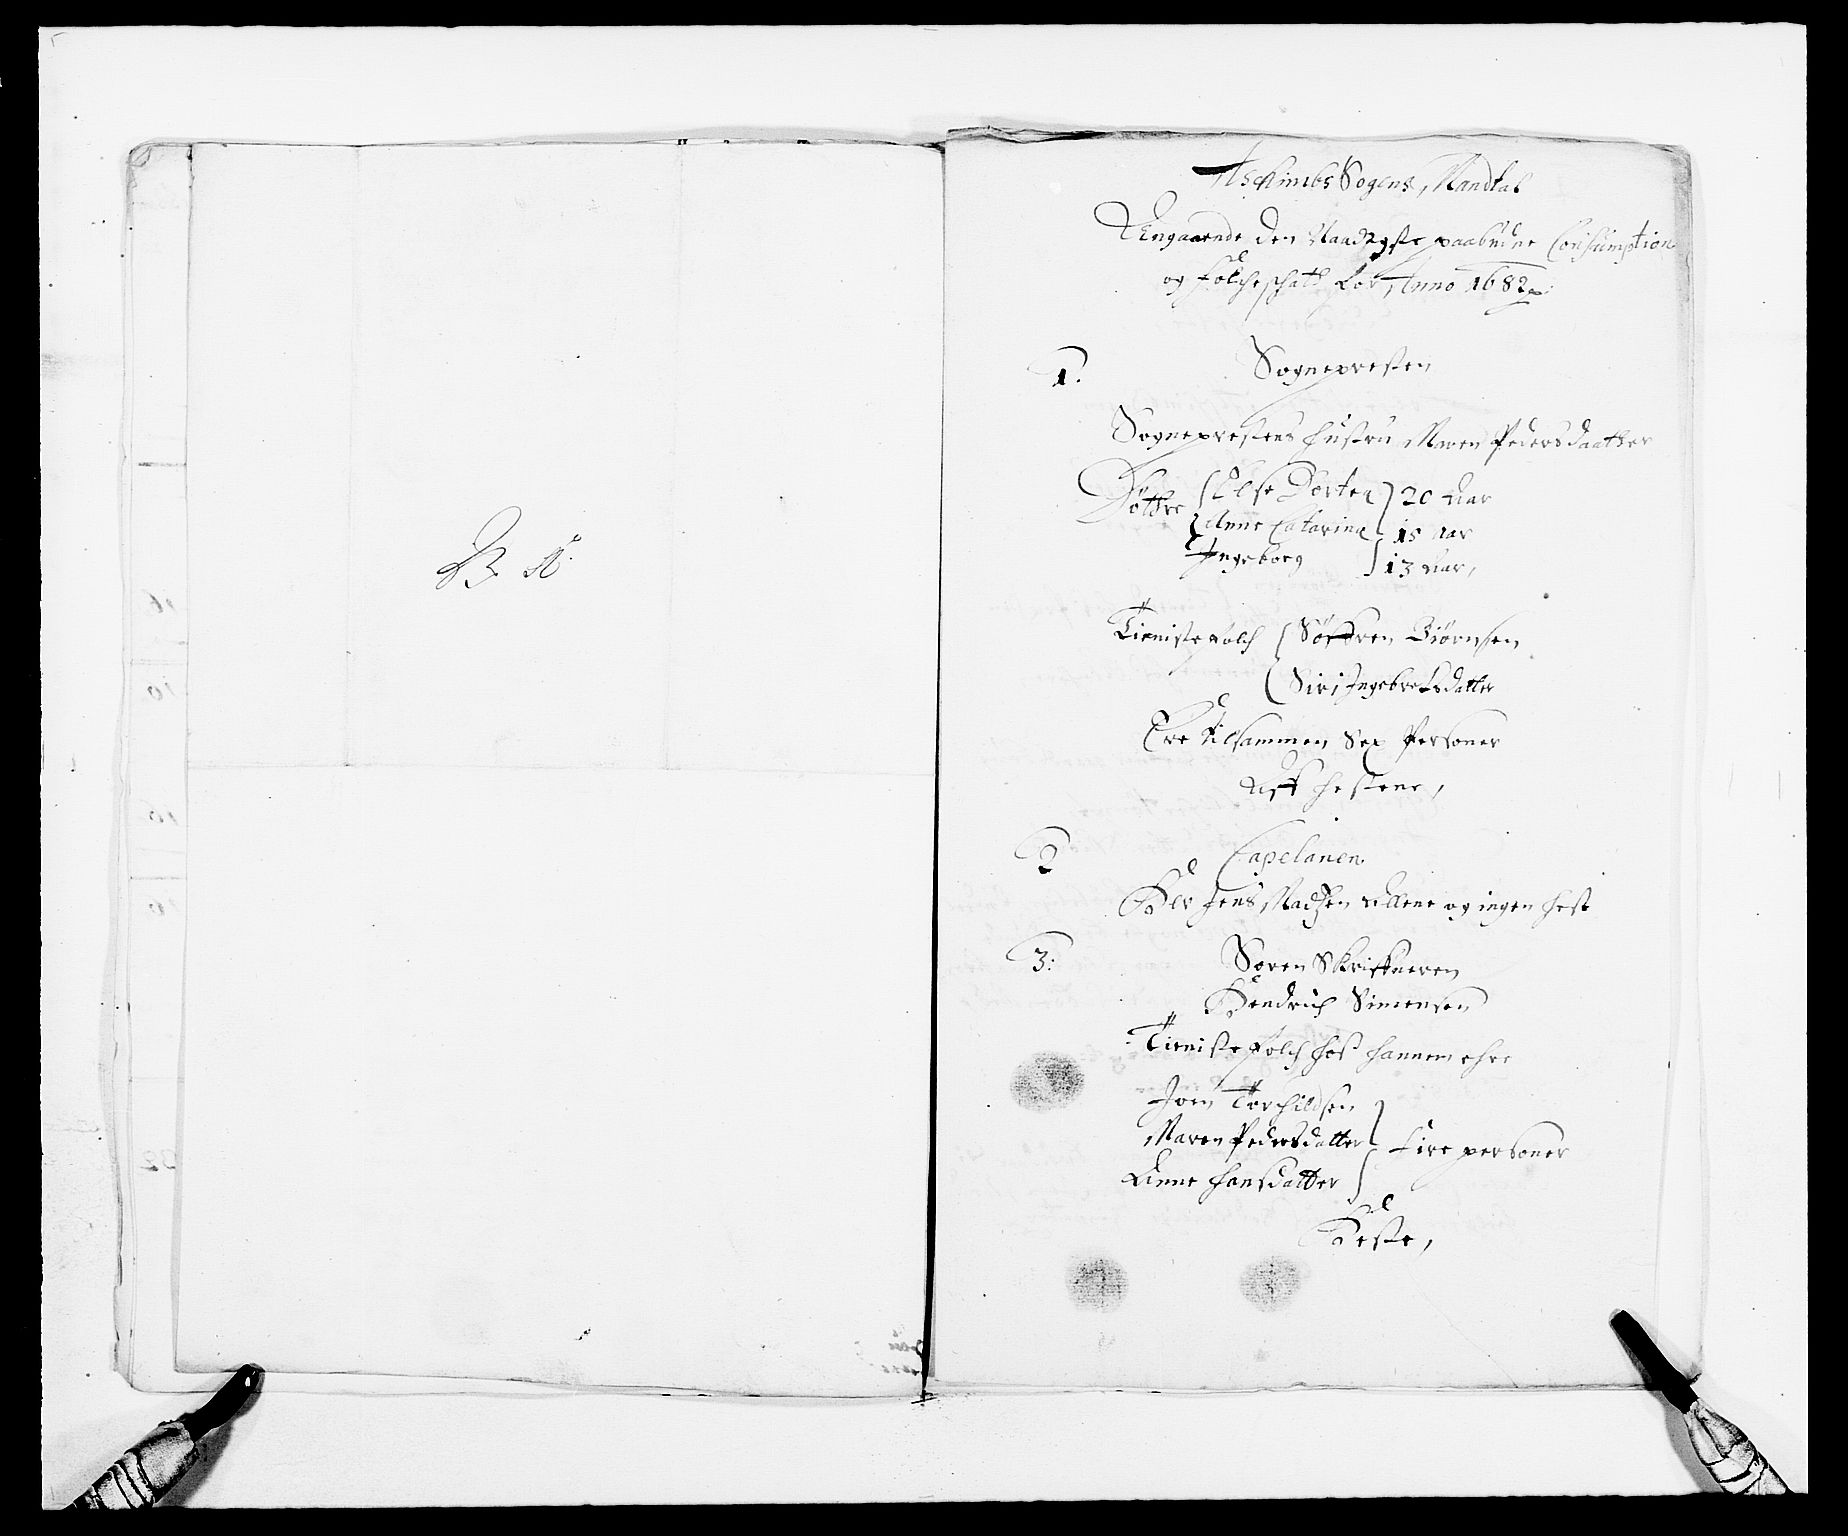 Aschimbs Sogens Mandtal
Angaaende den Naadigste paabudne Consumption
og Folcheschatt for Anno 1682
1. Sognepresten
Sogneprestens hustru Maren Pedersdaatter
Døttre Else Dorten 20 Aar
Anne Catarina 15 Aar
Ingeborg 13 Aar,
Tienistefolch Søffren Biørnsen
Siri Ingebretsdatter
Ere tilsammen Sex Personer
Aff hestene,
2 Capelanen
Her Jens Madsen Allene og ingen hest
3: Soren Skriffueren
Hendrich Simensen
Tieniste Folch hos hannem ehre
Joen Torchildsen
Maren Pedersdatter fire personer
Anne hansdatter
Heste,